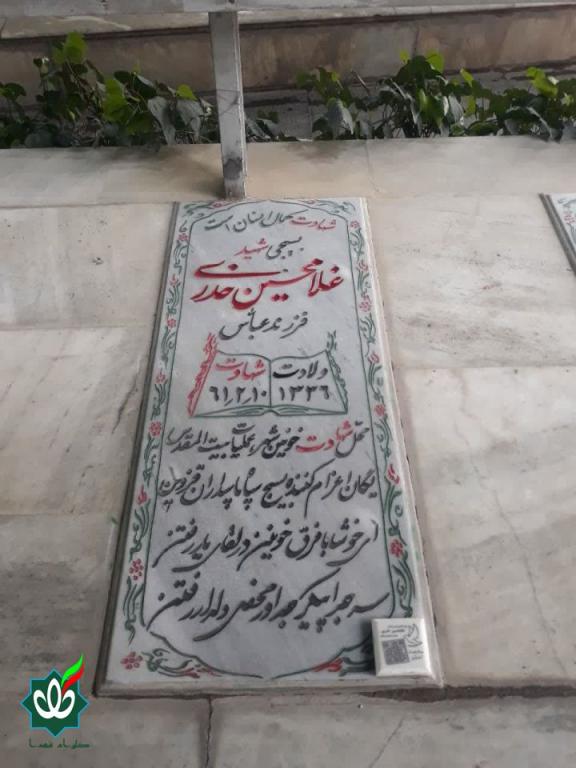 شهادت کمال انسان است
بسیجی شهید
غلامحسین خدری
فرزند عباس
ولادت شهادت
۱۳۳۶ ۶۱,۲,۱۰
محل شهادت خونین شهر عملیات بیت المقدس
یگان اعزام کننده بسیج سپاه پاسداران قزوین
ای خوشا با فرق خونین در لقای یار رفتن
سر جدا پیکر جدا در محفل دلدار رفتن
گلزار شهدا